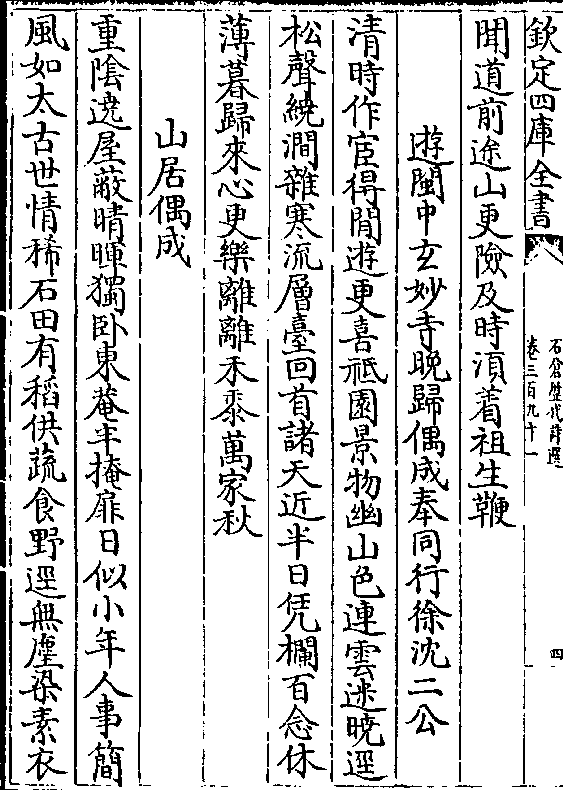 欽定四庫全書
石倉歷代詩選
卷三百九十一
四
聞道前途山更險及時須着祖生鞭
遊閩中玄妙寺晚歸偶成奉同行徐沈二公
清時作宦得閒遊更喜祇園景物幽山色連雲迷曉逕
松聲繞澗雜寒流層臺回首諸天近半日凭欄百念休
薄暮歸來心更樂離離禾黍萬家秋
山居偶成
重陰遶屋蔽晴暉獨卧東菴半掩扉日似小年人事簡
風如太古世情稀石田有稻供蔬食野逕無塵染素衣